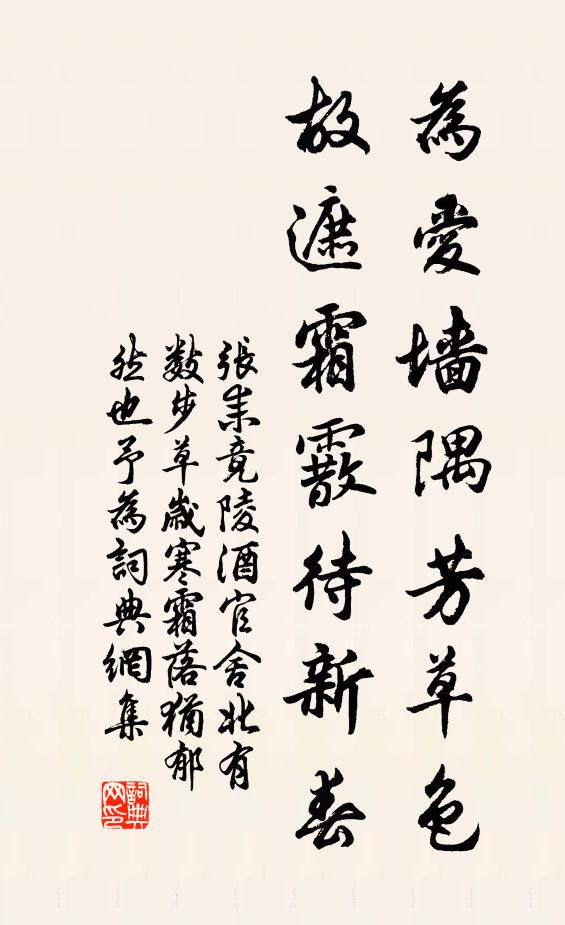 為愛墻隅芳草色
故遮霜霰待新春
張耒竟陵酒官舍北有
數步草歲寒霜落猶郁
然也予為詞典網集
詞典
网印